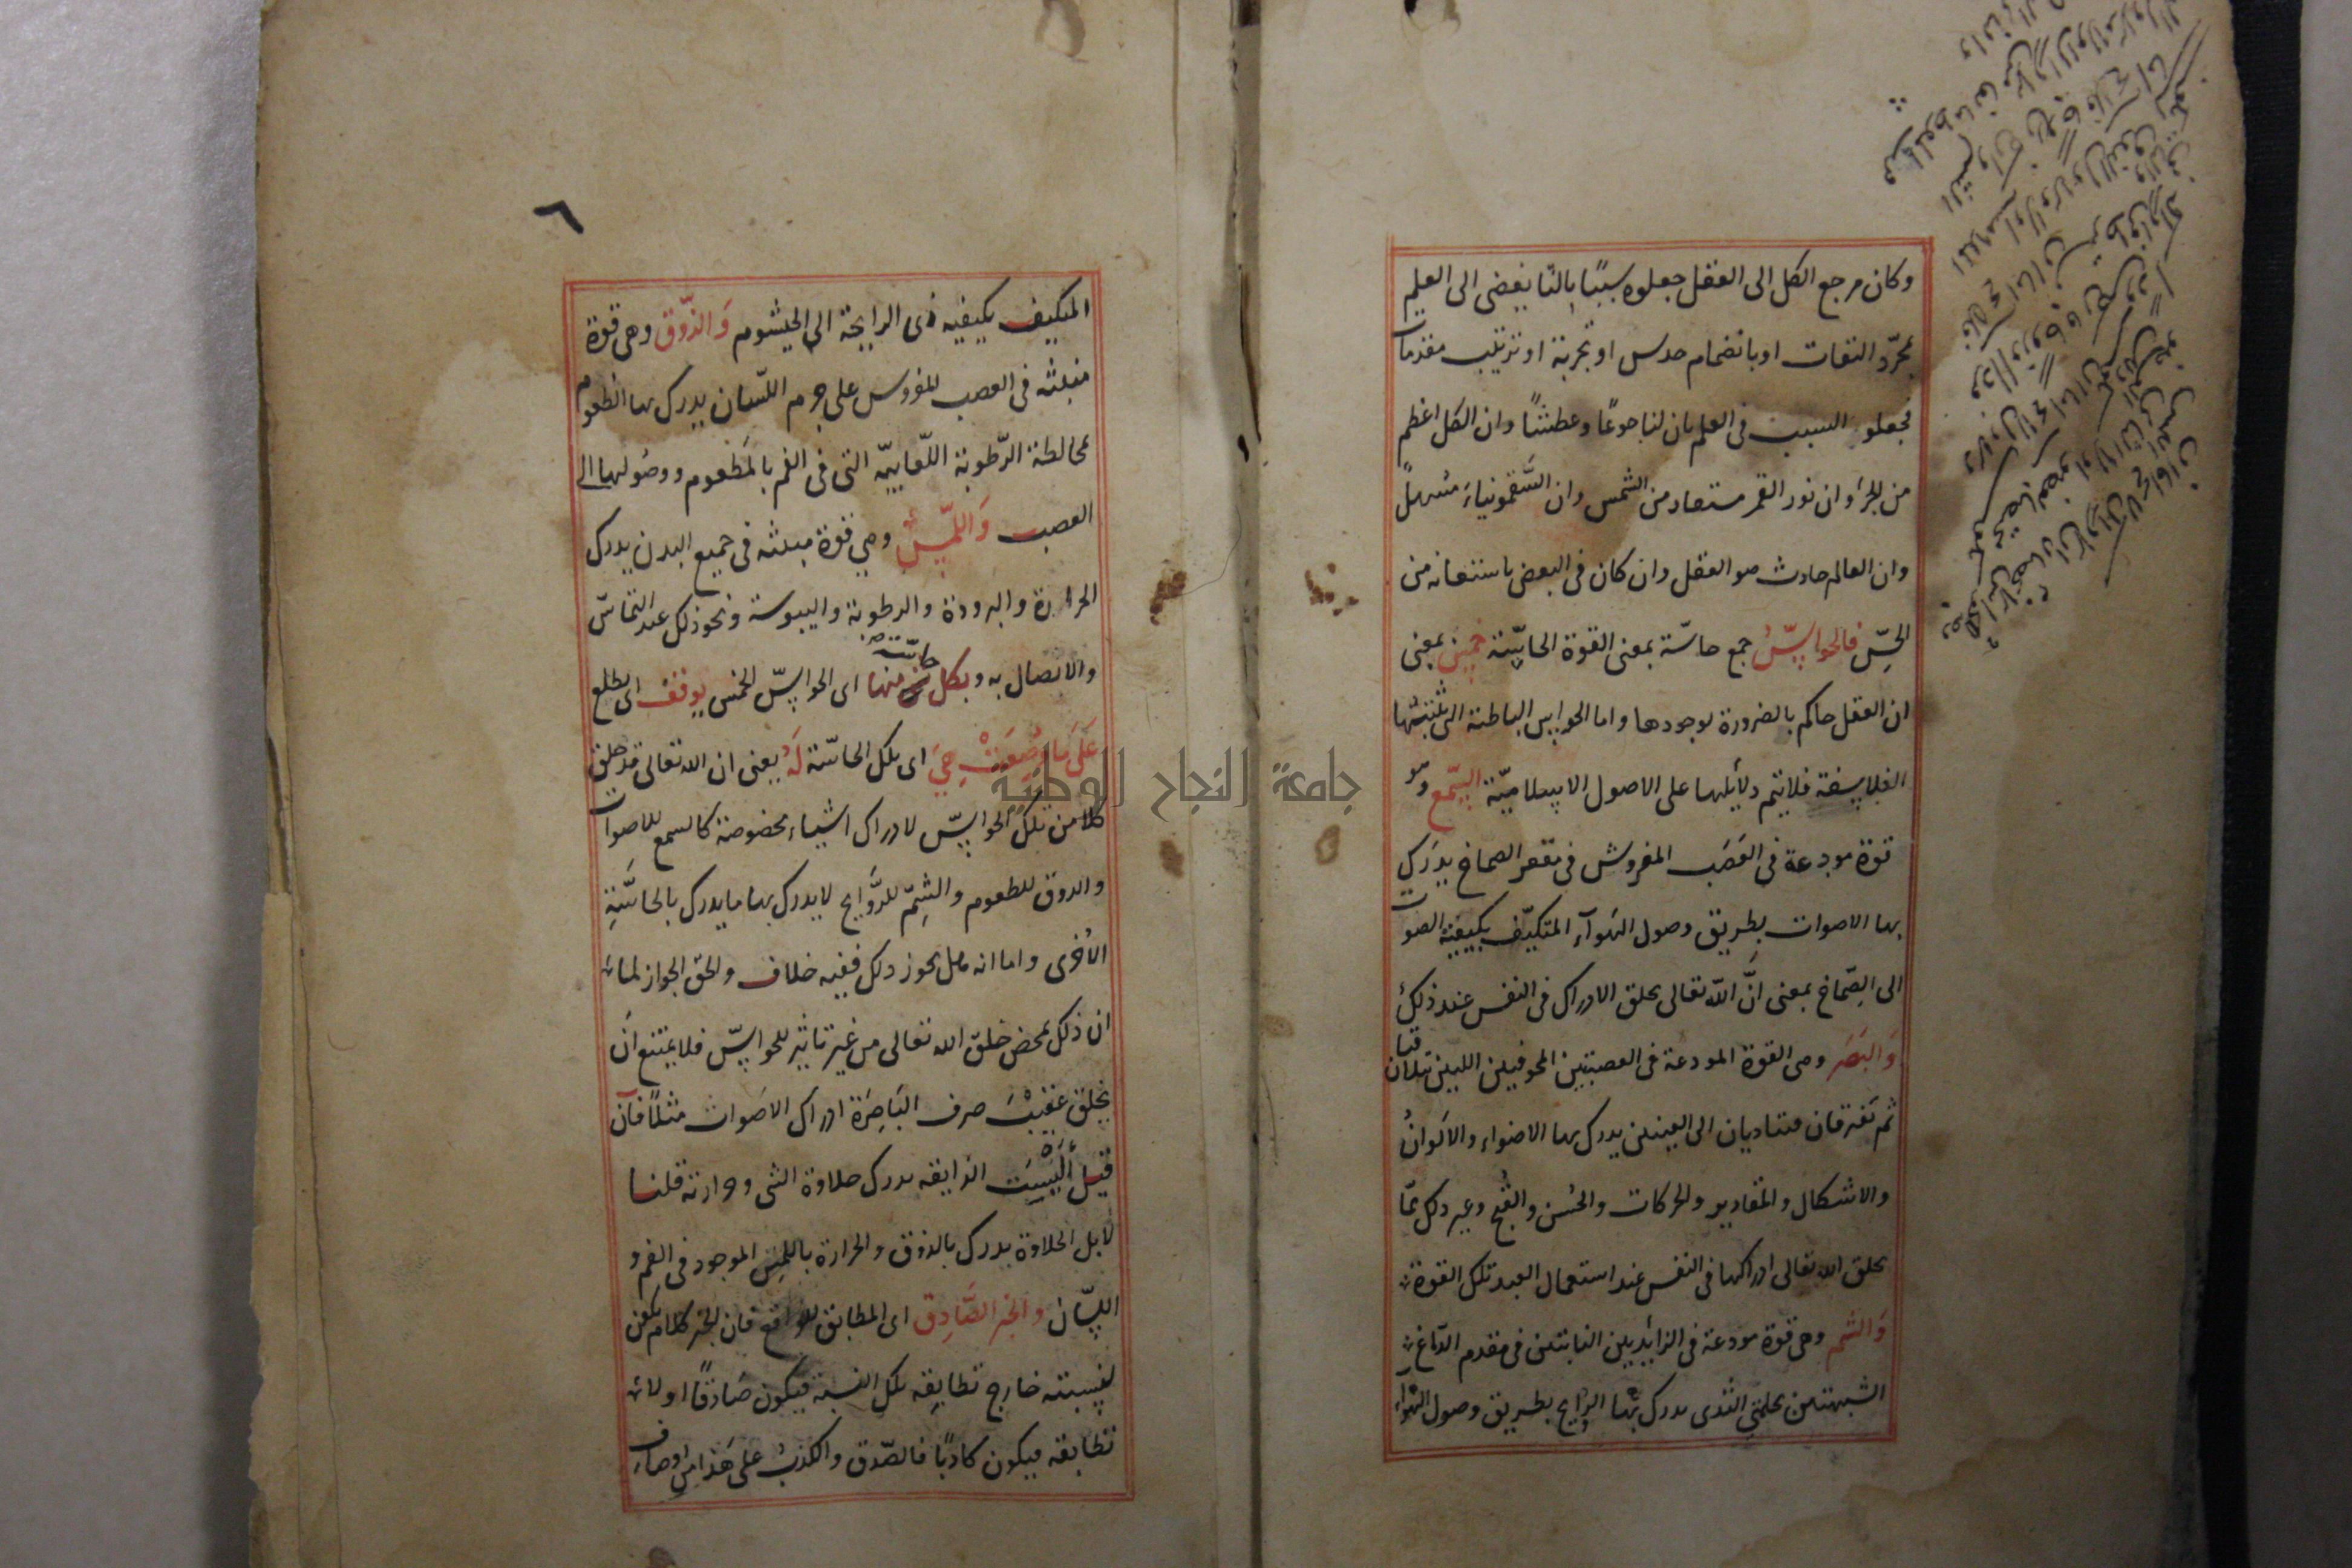 وكان مرجع الكل الى العقل جعلوه سببًا ثالثًا يفضى الى العلم
بمجرّد التفات او بانضمام حدس او تجربة او ترتيب مقدمات
فجعلوا السبب فى العلم بان لنا جوعًا وعطشًا وان الكل اعظم
من الجزء وان نور القمر مستفاد من الشمس وان السَّقمونياء مسهلً
وان العالم حادث هو العقل وان كان فى البعض باستعانه من
الحِسّ فالحواسّ جمع حاسّة بمعنى القوة الحاسّة خمس بمعنى
ان العقل حاكم بالضرورة بوجودها واما الحواس الباطنة التى تثبتها
الفلاسفة فلا يتم دلائلها على الاصول الاسلاميّة السّمع وهو
قوة مودعة فى العَصَب المفروش فى مقعر الصماخ يدرَك
بها الاصوات بطريق وصول الهَوآء المتكيّف بكيفية الصوت
الى الصِّماخ بمعنى انَّ اللّه تعالى يخلق الادراك فى النفس عند ذلك
وَالبَصَر وهى القوة المودعة فى العصبتين المجوفتين اللتين تتلاقيان
ثم تفترقان فتتاديان الى العينين يدرك بها الاضواء والاَلوانُ
والاشكال والمقادير والحركات والحُسن والقُبح وغير ذلك ممّا
يخلق الله تعالى ادراكها فى النفس عند استعمال العبد تلك القوة
وَالشم وهى قوة مودعة فى الزائدتين النابتتين فى مقدم الدّماغ
الشبيهتين بحلمتي الثدى يدرك بها الروايح بطريق وصول الهواء
٦
المتكيف بكيفيه ذى الرايحة الى الخيشوم وَالذَّوق وهى قوة
منبثه فى العصب المفروش على جرم اللسّان يدرك بها الطعوم
بمخالطة الرّطوبة اللّعابيّه التى فى الفم بالمَطعوم ووصُولها الى
العصب وَاللَّمْس وهي قوة منبثه فى جميع البدن يدرك
الحرارة والبرودة والرطوبة واليبوسة ونحو ذلك عند التماسّ
والاتصال به وبكل حاسّة منها اى الحواسّ الخمس يوقف اى يطلع
عَلَى مَا وُضِعَتْ هِيَ اى تلك الحاسّة لَهُ يعنى ان الله تعالى قد خلق
كلا من تلك الحواسّ لادراك اشياء مخصوصة كالسمع للاصوات
والذوق للطعوم والشِمّ للرَّوايح لا يدرك بها ما يدرك بالحاسَّةِ
الأخرى واما انه هل يجوز ذلك ففيه خلاف والحق الجواز لما
ان ذلك بمحض خلق الله تعالى من غير تاثير للحواسّ فلا يمتنع انَ
يخلق عقيب صرف البَاصِرَة ادراك الاصَوات مثلاً فآن
قيل أَلَيْسَت الذايقه تدرك حلاوة الشى وحرارته قلنا
لا بل الحلاوة يدرك بالذوق والحرارة باللمس الموجود فى الفم و
اللسّان والخبر الصَّادِق اى المطابق للواقع فان الخبر كلام يكون
لنسبته خارج تطابقه تلك النسبة فيكون صَادقًا اولا
تطابقه فيكون كاذبًا فالصّدق والكذبُ على هَذا من اوصاف
جامعة النجاح الوطنية